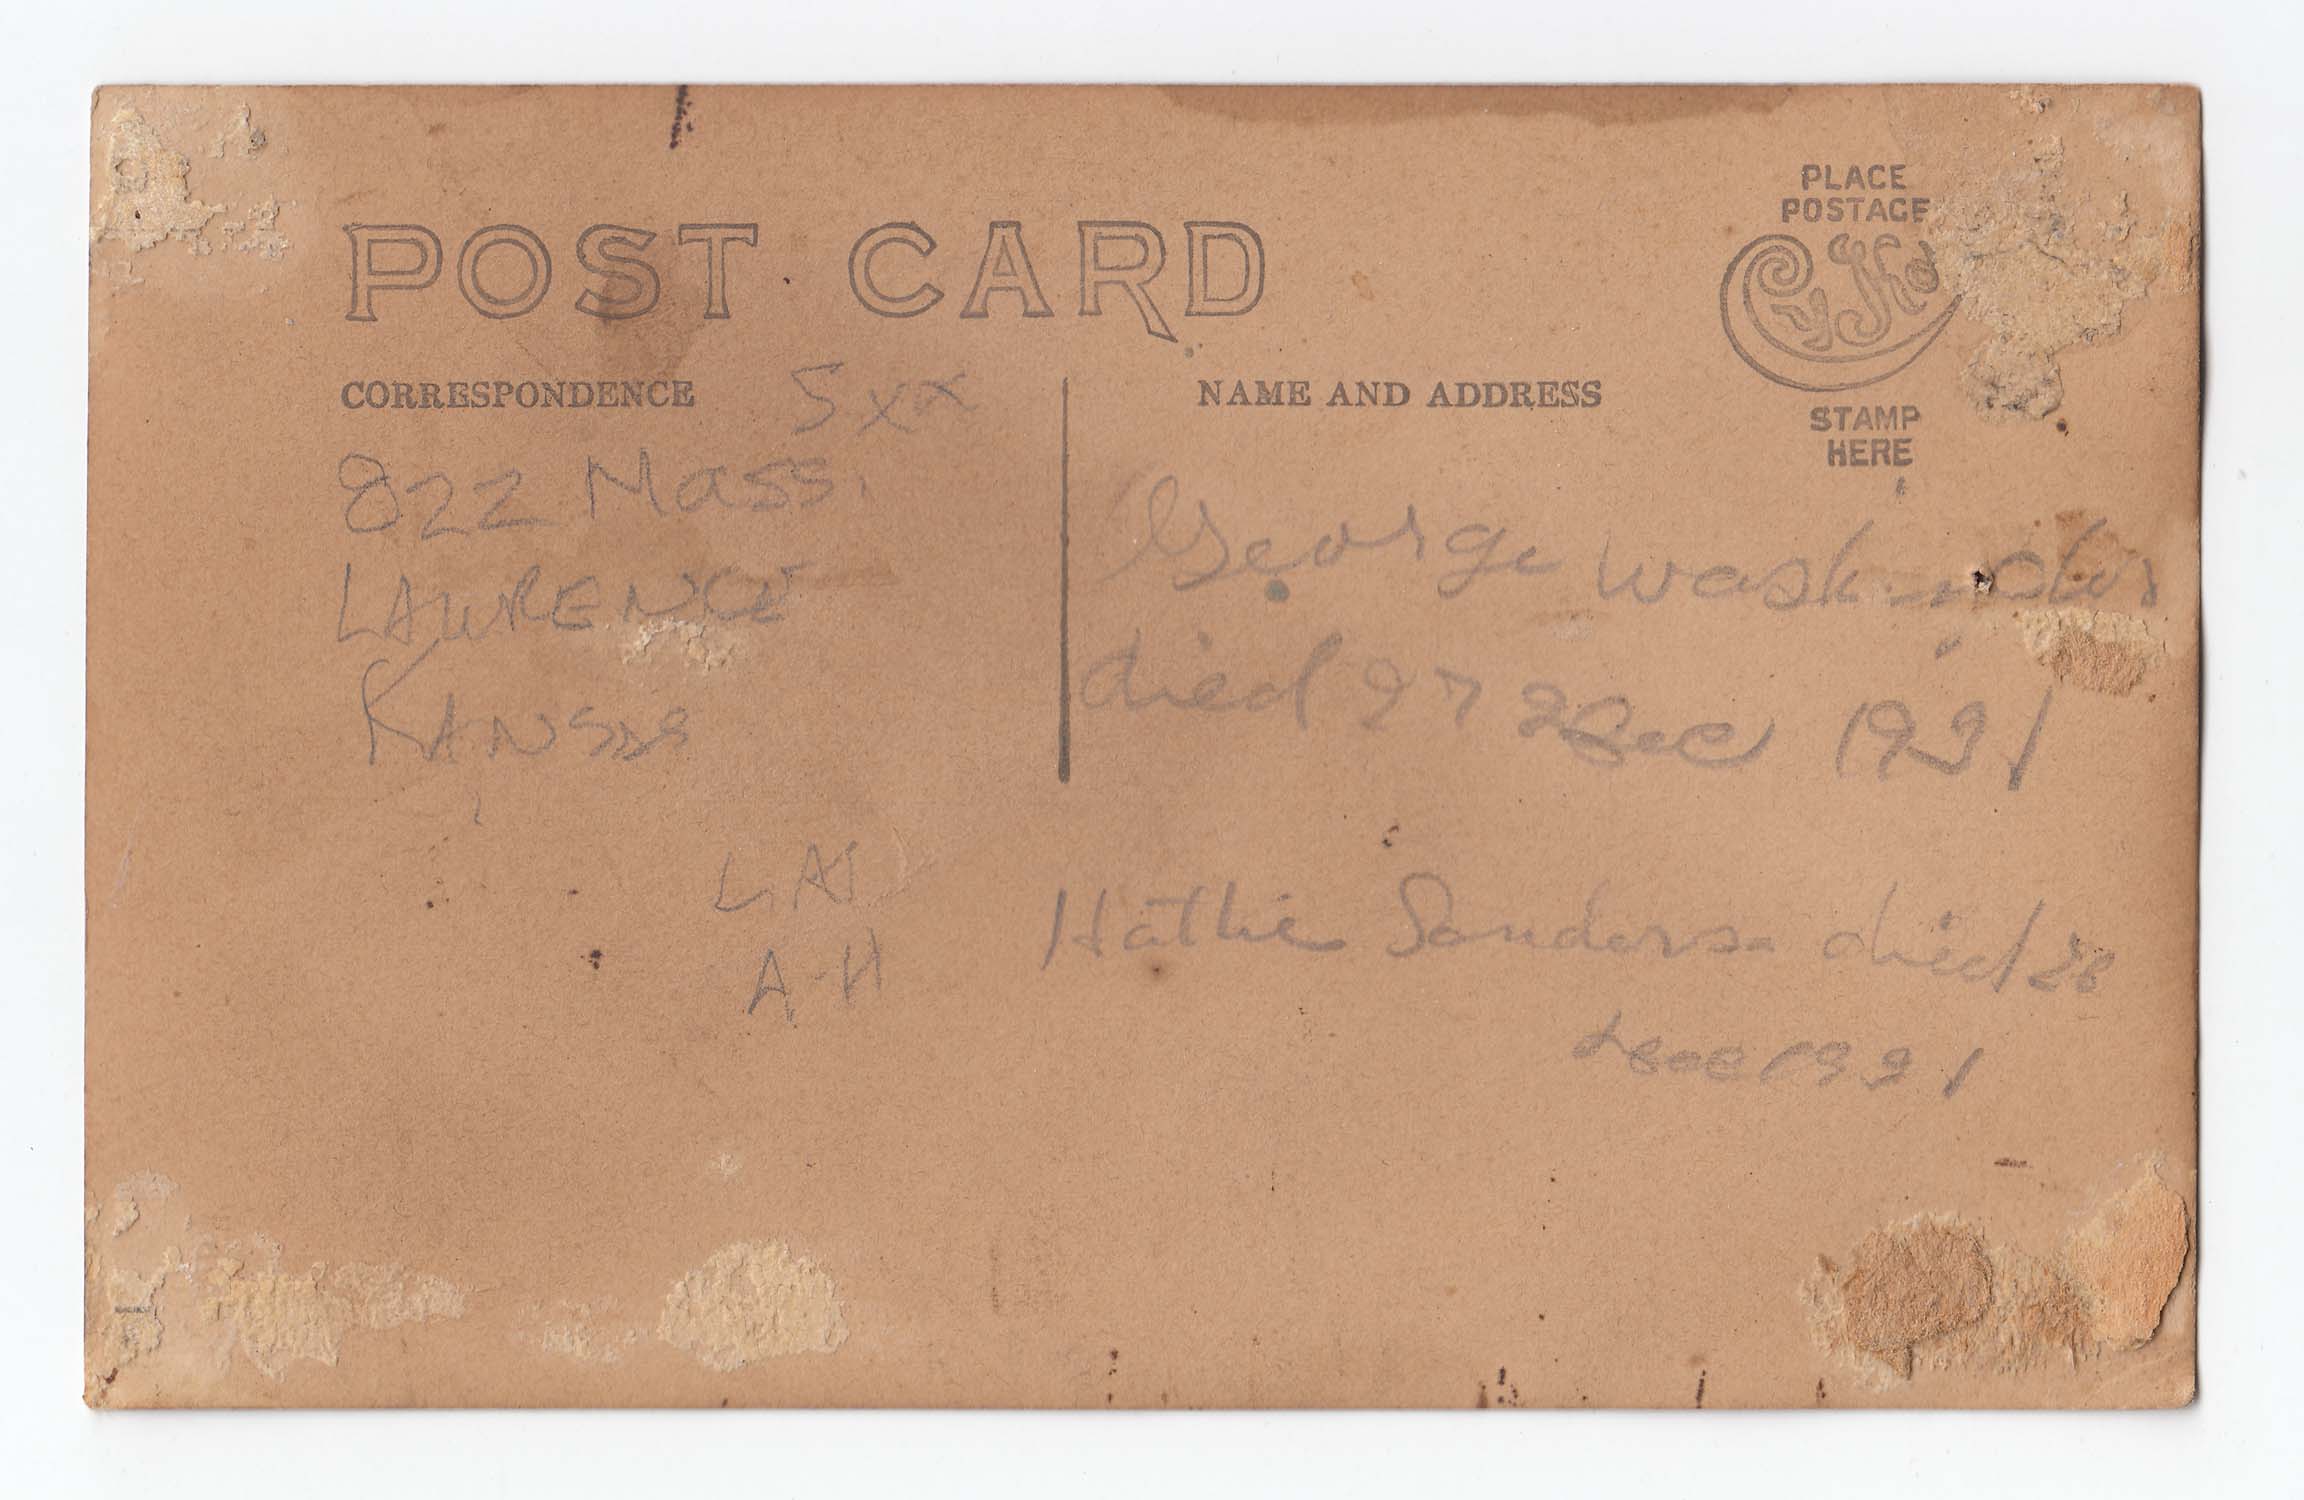 POST CARD
PLACE
POSTAGE
Cyko
STAMP
HERE
CORRESPONDENCE
NAME AND ADDRESS
5xx
822 Mass.
LAWRENCE
KANSAS
A-H
George Washington
died 27 Dec 1921
Hattie Sanders died 28
Dec 1921